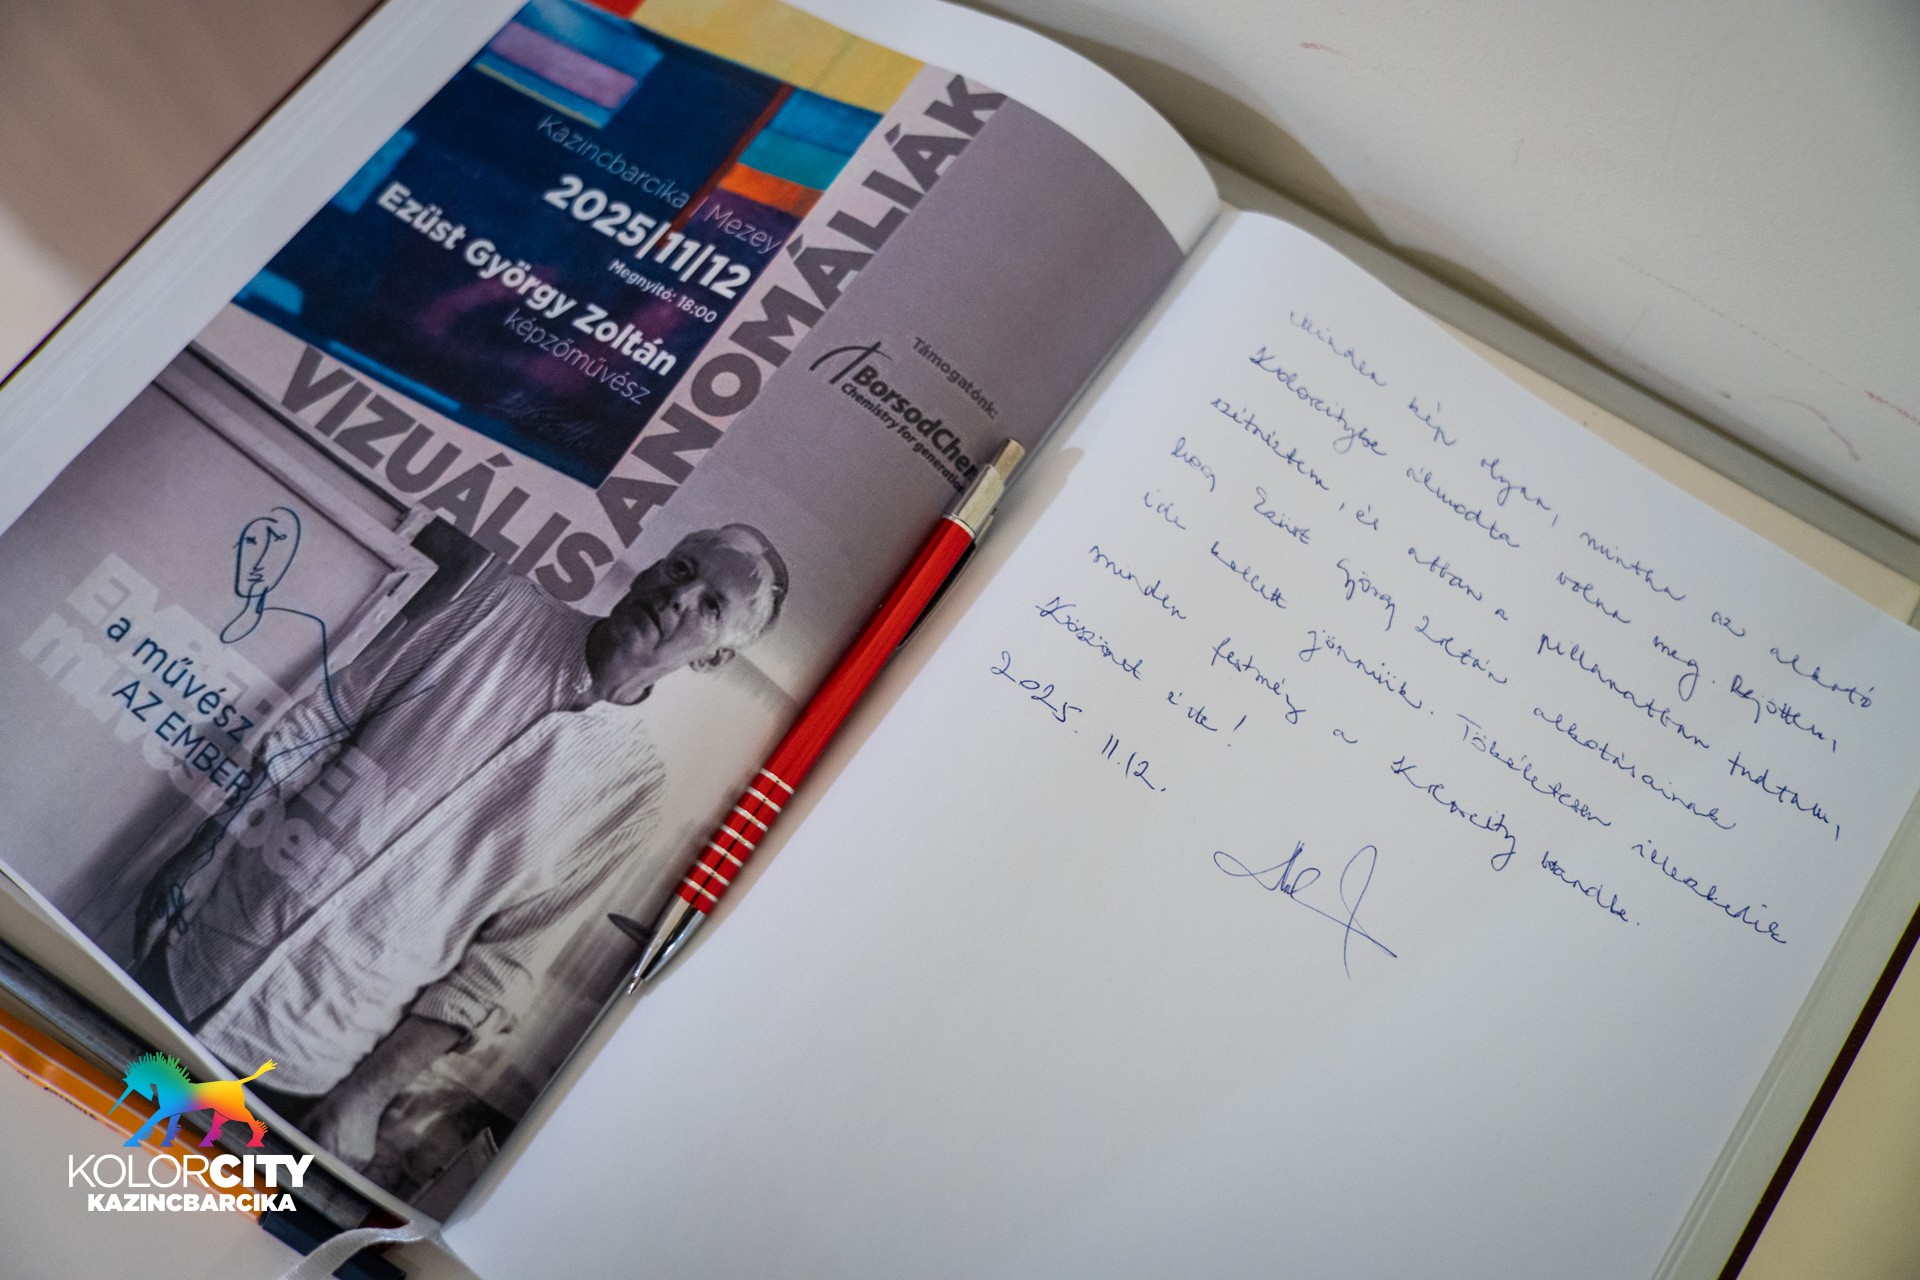 Kazincbarcika | Mezey
2025|11|12
Megnyitó: 18:00
Ezüst György Zoltán
képzőművész
VIZUÁLIS
ANOMÁLIÁK
Támogatónk:
BorsodChem
Chemistry for generations
a művész
AZ EMBER
Minden kép olyan, mintha az alkotó
Kolorcitybe álmodta volna meg. Bejöttem,
szétnéztem, és abban a pillanatban tudtam,
hogy Ezüst György Zoltán alkotásainak
ide kellett jönniük. Tökéletesen illeszkedik
minden festmény a Kolorcity brandbe.
Köszönet érte!
2025. 11.12.
KOLORCITY
KAZINCBARCIKA